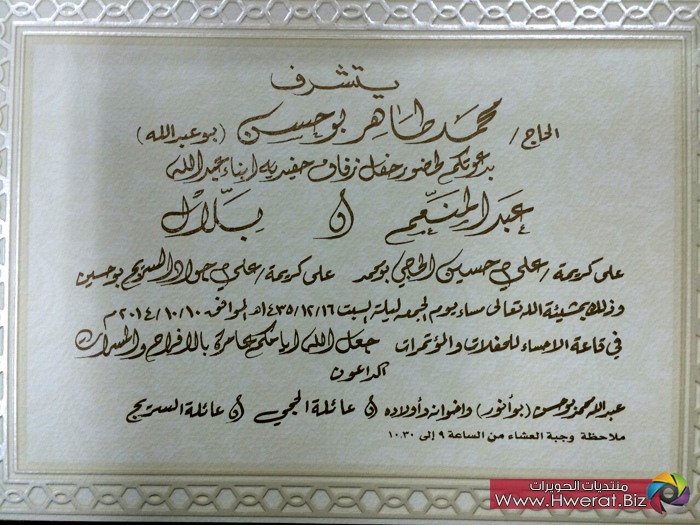 يتشرف
الحاج / محمد طاهر بوحسن (بوعبدالله)
بدعوتكم لحضور حفل زفاف حفيديه ابناء عبدالله
عبدالمنعم & بلال
على كريمة / علي حسين الحجي بومحمد على كريمة / علي جواد السريج بوحسين
وذلك بمشيئة الله تعالى مساء يوم الجمعه ليلة السبت ١٤٣٥/١٢/١٦هـ الموافق ٢٠١٤/١٠/١٠م
في قاعة الاحساء للحفلات والمؤتمرات جعل الله ايامكم عامرة بالافراح والمسرات
الداعون
عبدالله محمد بوحسن (بوأنور) واخوانه وأولاده & عائلة الحجي & عائلة السريج
ملاحظة وجبة العشاء من الساعة ٩ إلى ١٠.٣٠
منتديات الحويرات
www.Hwerat.Biz